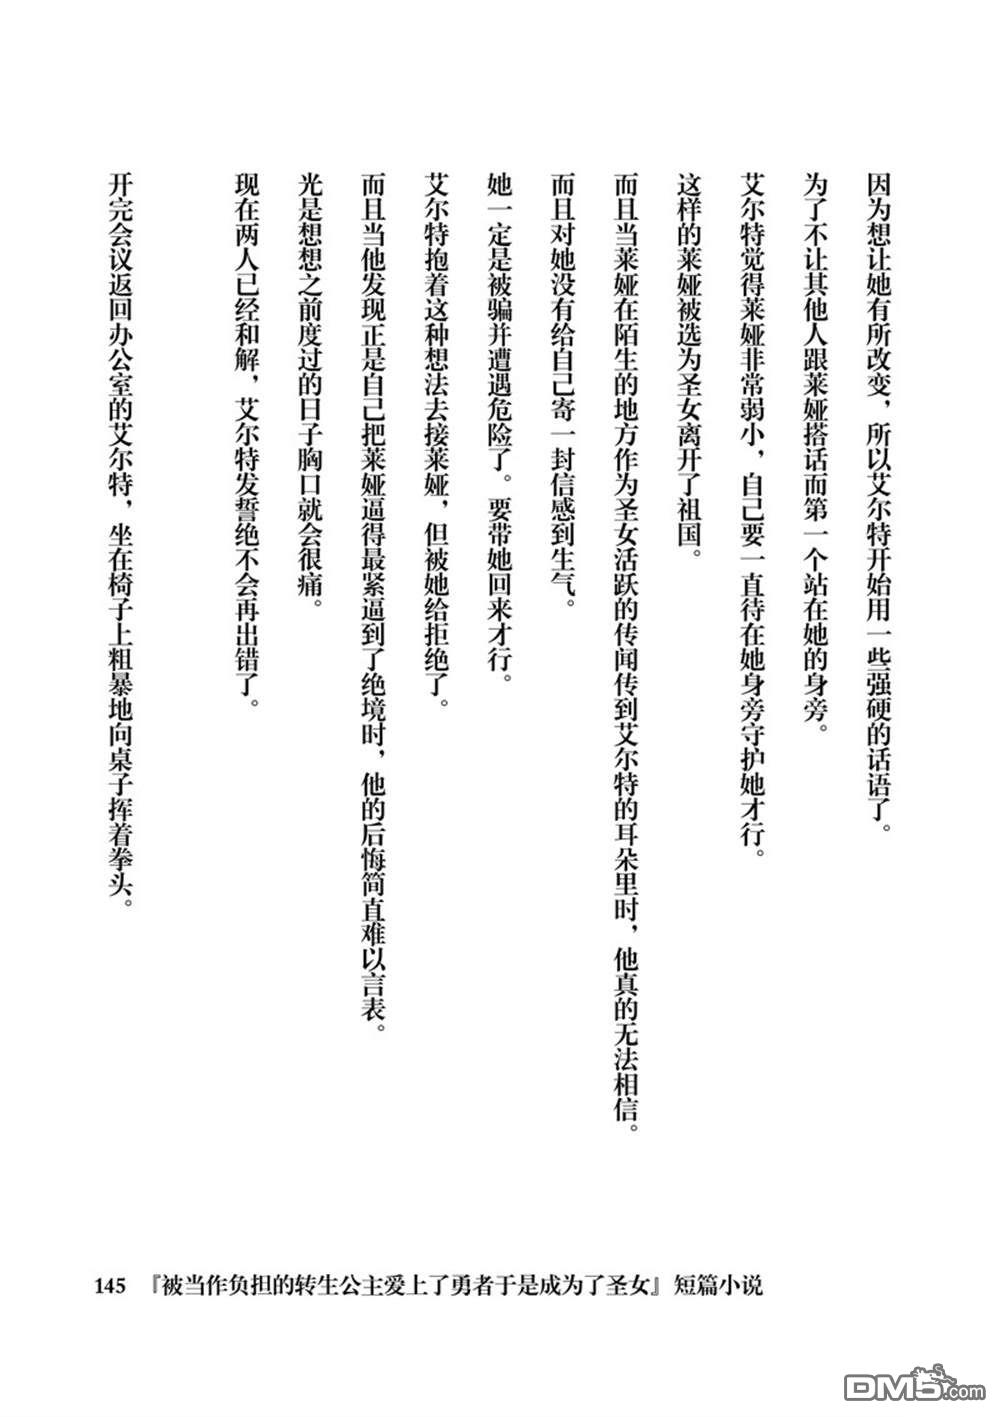 因为想让她有所改变，所以艾尔特开始用一些强硬的话语了。
为了不让其他人跟莱娅搭话而第一个站在她的身旁。
艾尔特觉得莱娅非常弱小，自己要一直待在她身旁守护她才行。
这样的莱娅被选为圣女离开了祖国。
而且当莱娅在陌生的地方作为圣女活跃的传闻传到艾尔特的耳朵里时，他真的无法相信。
而且对她没有给自己寄一封信感到生气。
她一定是被骗并遭遇危险了。要带她回来才行。
艾尔特抱着这种想法去接莱娅，但被她给拒绝了。
而且当他发现正是自己把莱娅逼得最紧逼到了绝境时，他的后悔简直难以言表。
光是想想之前度过的日子胸口就会很痛。
现在两人已经和解，艾尔特发誓绝不会再出错了。
开完会议返回办公室的艾尔特，坐在椅子上粗暴地向桌子挥着拳头。
145 『被当作负担的转生公主爱上了勇者于是成为了圣女』短篇小说
DM5.com